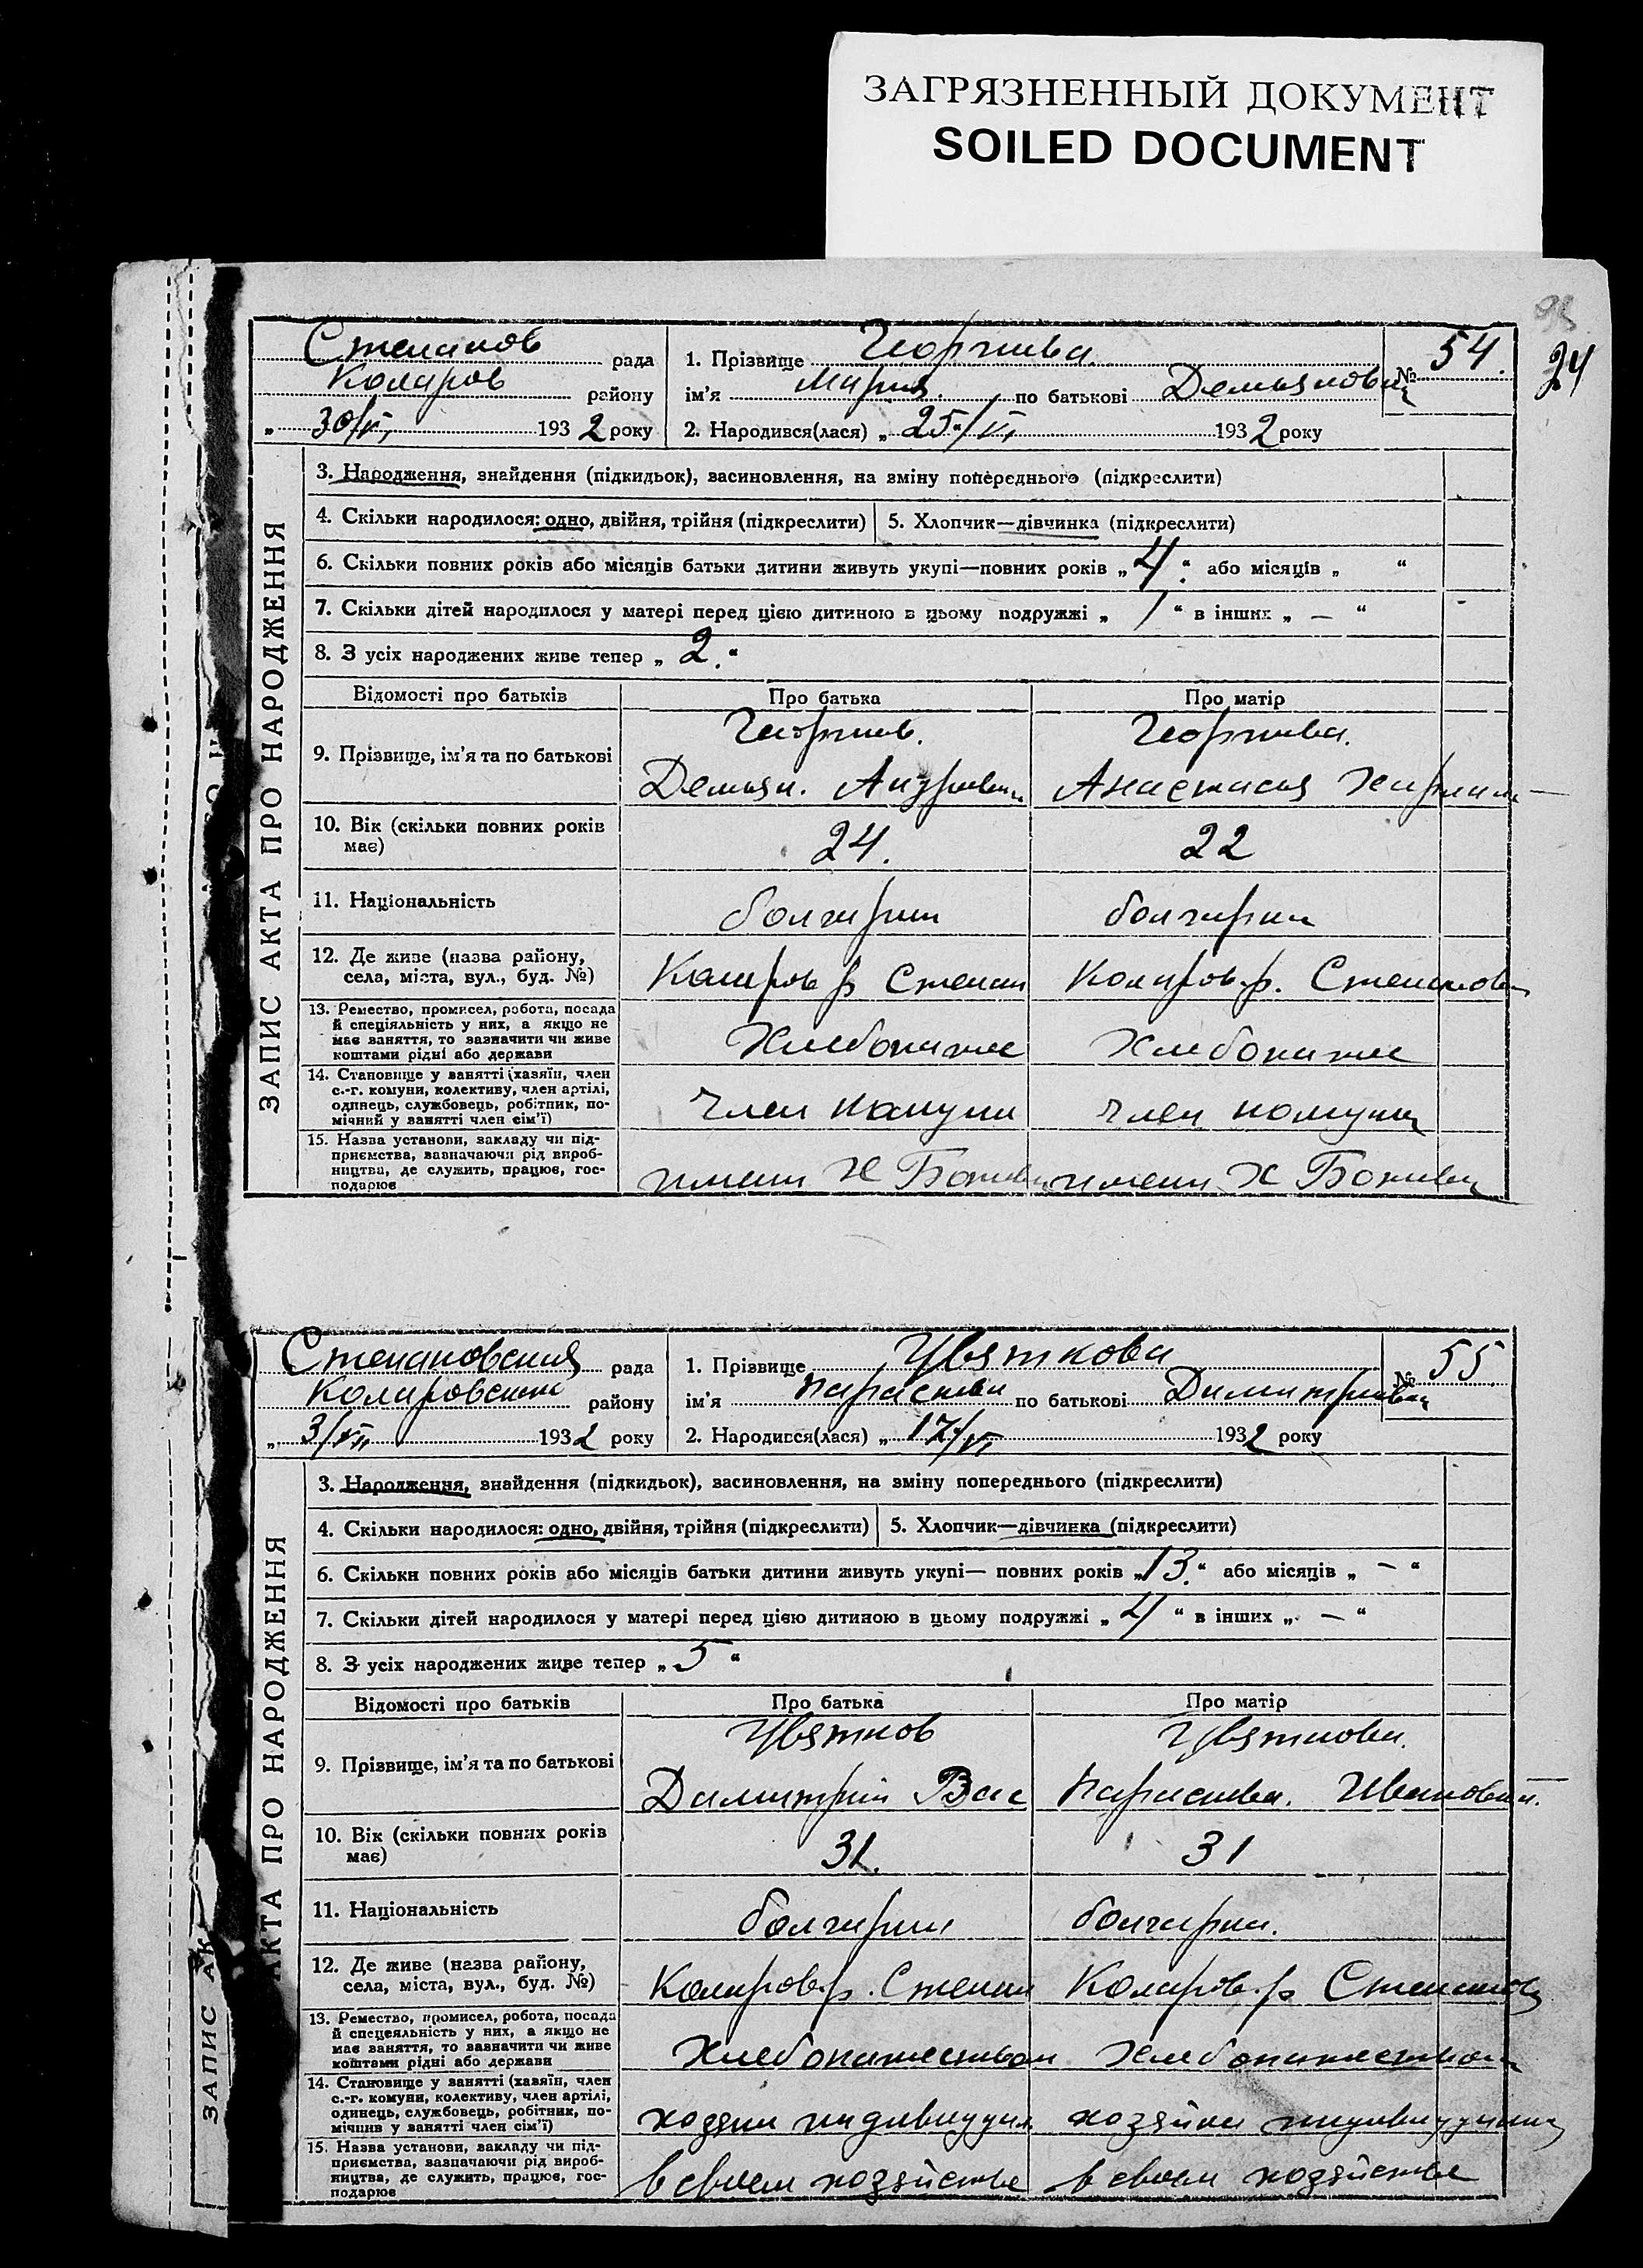 ЗАГРЯЗНЕННЫЙ ДОКУМЕНТ
SOILED DOCUMENT
24
ЗАПИС АКТА ПРО НАРОДЖЕННЯ
Степанов рада
Коларов району
„ 30/VI 1932 року
1. Прізвище Георгиева
ім'я Мария по батькові Демьяновна
№ 54.
2. Народився(лася) „ 25/VI 1932 року
3. Народження, знайдення (підкидьок), засиновлення, на зміну попереднього (підкреслити)
4. Скільки народилося: одно, двійня, трійня (підкреслити) 5. Хлопчик—дівчинка (підкреслити)
6. Скільки повних років або місяців батьки дитини живуть укупі—повних років „ 4 “ або місяців „ “
7. Скільки дітей народилося у матері перед цією дитиною в цьому подружжі „ 1 “ в інших „ — “
8. З усіх народжених живе тепер „ 2. “
Відомості про батьків Про батька Про матір
9. Прізвище, ім'я та по батькові Георгиев. Георгиева.
Демьян. Анастасия
10. Вік (скільки повних років має) 24. 22
11. Національність болгарин болгарин
12. Де живе (назва району, села, міста, вул., буд. №) Коларов р Степан Коларов.р. Степанов
13. Ремество, промисел, робота, посада й спеціяльність у них, а якщо не має заняття, то зазначити чи живе коштами рідні або держави Хлебопаше Хлебопаше
14. Становище у занятті (хазяїн, член с.-г. комуни, колективу, член артілі, одинець, службовець, робітник, помічний у занятті член сім'ї) член комуни член комуни
15. Назва установи, закладу чи підприємства, зазначаючи рід виробництва, де служить, працює, господарює имени Х Ботева имени Х Ботева
АКТА ПРО НАРОДЖЕННЯ
ЗАПИС АК
Степановская рада
Коларовский району
„ 3/VII 1932 року
1. Прізвище Цвяткова
ім'я Параскева по батькові Димитриевна
№ 55
2. Народився(лася) „ 17/VI 1932 року
3. Народження, знайдення (підкидьок), засиновлення, на зміну попереднього (підкреслити)
4. Скільки народилося: одно, двійня, трійня (підкреслити) 5. Хлопчик—дівчинка (підкреслити)
6. Скільки повних років або місяців батьки дитини живуть укупі— повних років „ 13. “ або місяців „ — “
7. Скільки дітей народилося у матері перед цією дитиною в цьому подружжі „ 4 “ в інших „ — “
8. З усіх народжених живе тепер „ 5 “
Відомості про батьків Про батька Про матір
9. Прізвище, ім'я та по батькові Цвятков Цвяткова.
Димитрий Вас Параскева. Ивановна.
10. Вік (скільки повних років має) 31. 31
11. Національність болгарин болгарин.
12. Де живе (назва району, села, міста, вул., буд. №) Коларов.р. Степан Коларов.р Степанов
13. Ремество, промисел, робота, посада й спецеяльність у них, а якщо не має заняття, то зазначити чи живе коштами рідні або держави Хлебопашеством Хлебопашеством
14. Становище у занятті (хазяїн, член с.-г. комуни, колективу, член артілі, одинець, службовець, робітник, помічнив у занятті член сім'ї) хозяин индивидуал. хозяйка
15. Назва установи, закладу чи підприємства, зазначаючи рід виробництва, де служить, працює, господарює в своем хозяйстве в своем хозяйстве